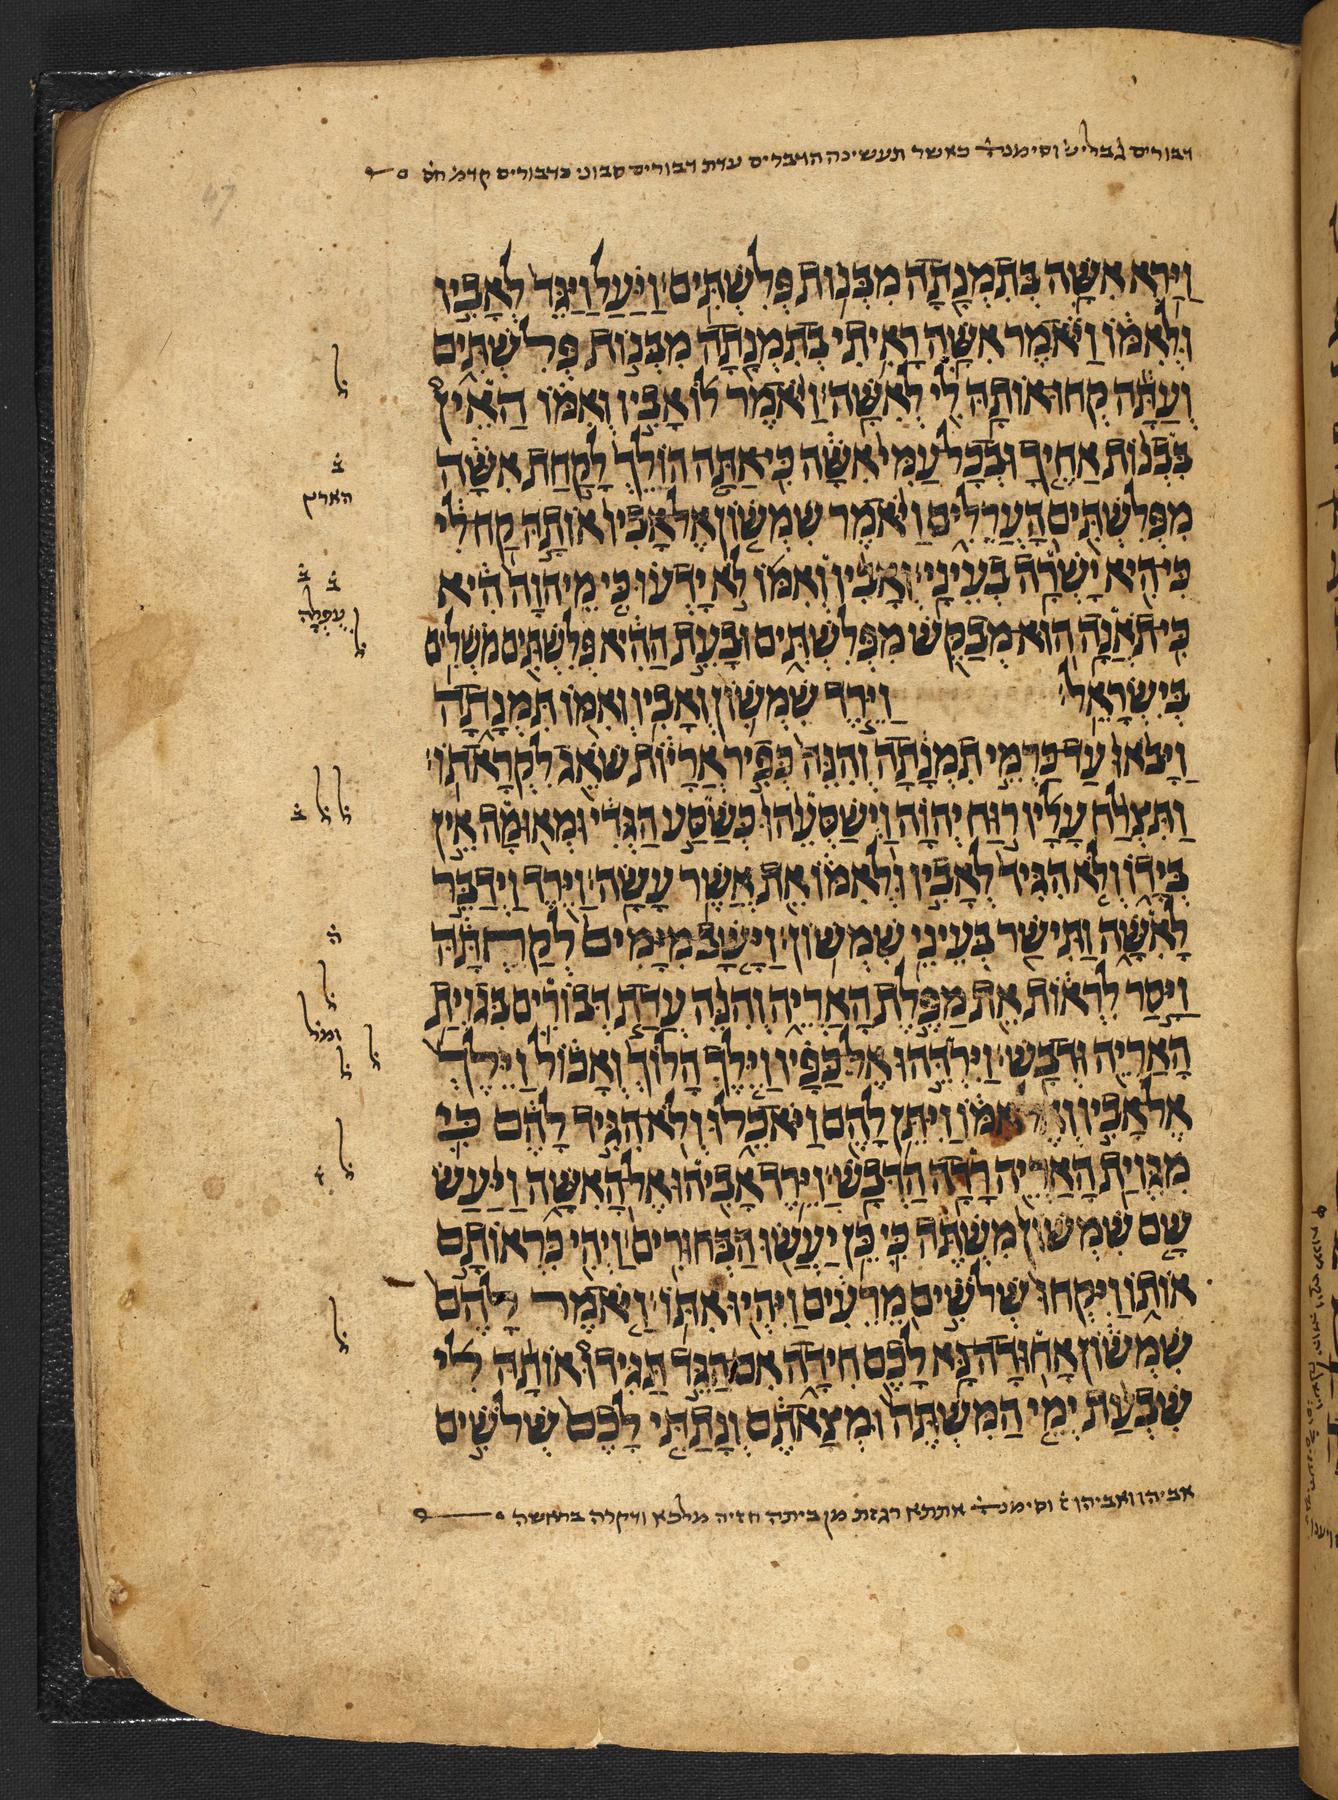 דבורים ג֗ בליש֗ וסימנה֗ כאשר תעשינה הדברים עדת דבורים סבוני כדבורים קדמ֗ חס֗
וַיַּרְא אִשָּׁה בְּתִמְנָתָה מִבְּנוֹת פְּלִשְׁתִּים׃ וַיַּעַל וַיַּגֵּד לְאָבִיו
וּלְאִמּוֹ וַיֹּאמֶר אִשָּׁה רָאִיתִי בְתִמְנָתָה מִבְּנוֹת פְּלִשְׁתִּים
וְעַתָּה קְחוּ אוֹתָהּ לִּי לְאִשָּׁה׃ וַיֹּאמֶר לוֹ אָבִיו וְאִמּוֹ הַאֵין
בִּבְנוֹת אַחֶיךָ וּבְכָל עַמִּי אִשָּׁה כִּי אַתָּה הוֹלֵךְ לָקַחַת אִשָּׁה
מִפְּלִשְׁתִּים הָעֲרֵלִים וַיֹּאמֶר שִׁמְשׁוֹן אֶל אָבִיו אוֹתָהּ קַח לִי
כִּי הִיא יָשְׁרָה בְעֵינָי׃ וְאָבִיו וְאִמּוֹ לֹא יָדְעוּ כִּי מֵיְהוָה הִיא
כִּי תֹאֲנָה הוּא מְבַקֵּשׁ מִפְּלִשְׁתִּים וּבָעֵת הַהִיא פְּלִשְׁתִּים מֹשְׁלִים
בְּיִשְׂרָאֵל׃ וַיֵּרֶד שִׁמְשׁוֹן וְאָבִיו וְאִמּוֹ תִּמְנָתָה
וַיָּבֹאוּ עַד כַּרְמֵי תִמְנָתָה וְהִנֵּה כְּפִיר אֲרָיוֹת שֹׁאֵג לִקְרָאתוֹ׃
וַתִּצְלַח עָלָיו רוּחַ יְהוָה וַיְשַׁסְּעֵהוּ כְּשַׁסַּע הַגְּדִי וּמְאוּמָה אֵין
בְּיָדוֹ וְלֹא הִגִּיד לְאָבִיו וּלְאִמּוֹ אֵת אֲשֶׁר עָשָׂה׃ וַיֵּרֶד וַיְדַבֵּר
לָאִשָּׁה וַתִּישַׁר בְּעֵינֵי שִׁמְשׁוֹן׃ וַיָּשָׁב מִיָּמִים לְקַחְתָּהּ
וַיָּסַר לִרְאוֹת אֵת מַפֶּלֶת הָאַרְיֵה וְהִנֵּה עֲדַת דְּבוֹרִים בִּגְוִיַּת
הָאַרְיֵה וּדְבָשׁ׃ וַיִּרְדֵּהוּ אֶל כַּפָּיו וַיֵּלֶךְ הָלוֹךְ וְאָכוֹל וַיֵּלֶךְ
אֶל אָבִיו וְאֶל אִמּוֹ וַיִּתֵּן לָהֶם וַיֹּאכֵלוּ וְלֹא הִגִּיד לָהֶם כִּי
מִגְּוִיַּת הָאַרְיֵה רָדָה הַדְּבָשׁ׃ וַיֵּרֶד אָבִיהוּ אֶל הָאִשָּׁה וַיַּעַשׂ
שָׁם שִׁמְשׁוֹן מִשְׁתֶּה כִּי כֵּן יַעֲשׂוּ הַבַּחוּרִים׃ וַיְהִי כִּרְאוֹתָם
אוֹתוֹ וַיִּקְחוּ שְׁלֹשִׁים מֵרֵעִים וַיִּהְיוּ אִתּוֹ׃ וַיֹּאמֶר לָהֶם
שִׁמְשׁוֹן אָחוּדָה נָּא לָכֶם חִידָה אִם הַגֵּד תַּגִּידוּ אוֹתָהּ לִי
שִׁבְעַת יְמֵי הַמִּשְׁתֶּה וּמְצָאתֶם וְנָתַתִּי לָכֶם שְׁלֹשִׁים
אביהו ואביהו ז֗ וסימנה֗ אתתא רגזת מן ביתה חזיה מלכא ודקלה בראשה
ל
ב֗
הארץ
ב֗ ב֗
עפלה
ל
ל ל ב֗
ה֗
ל
ומל
ל ל
ל
ל